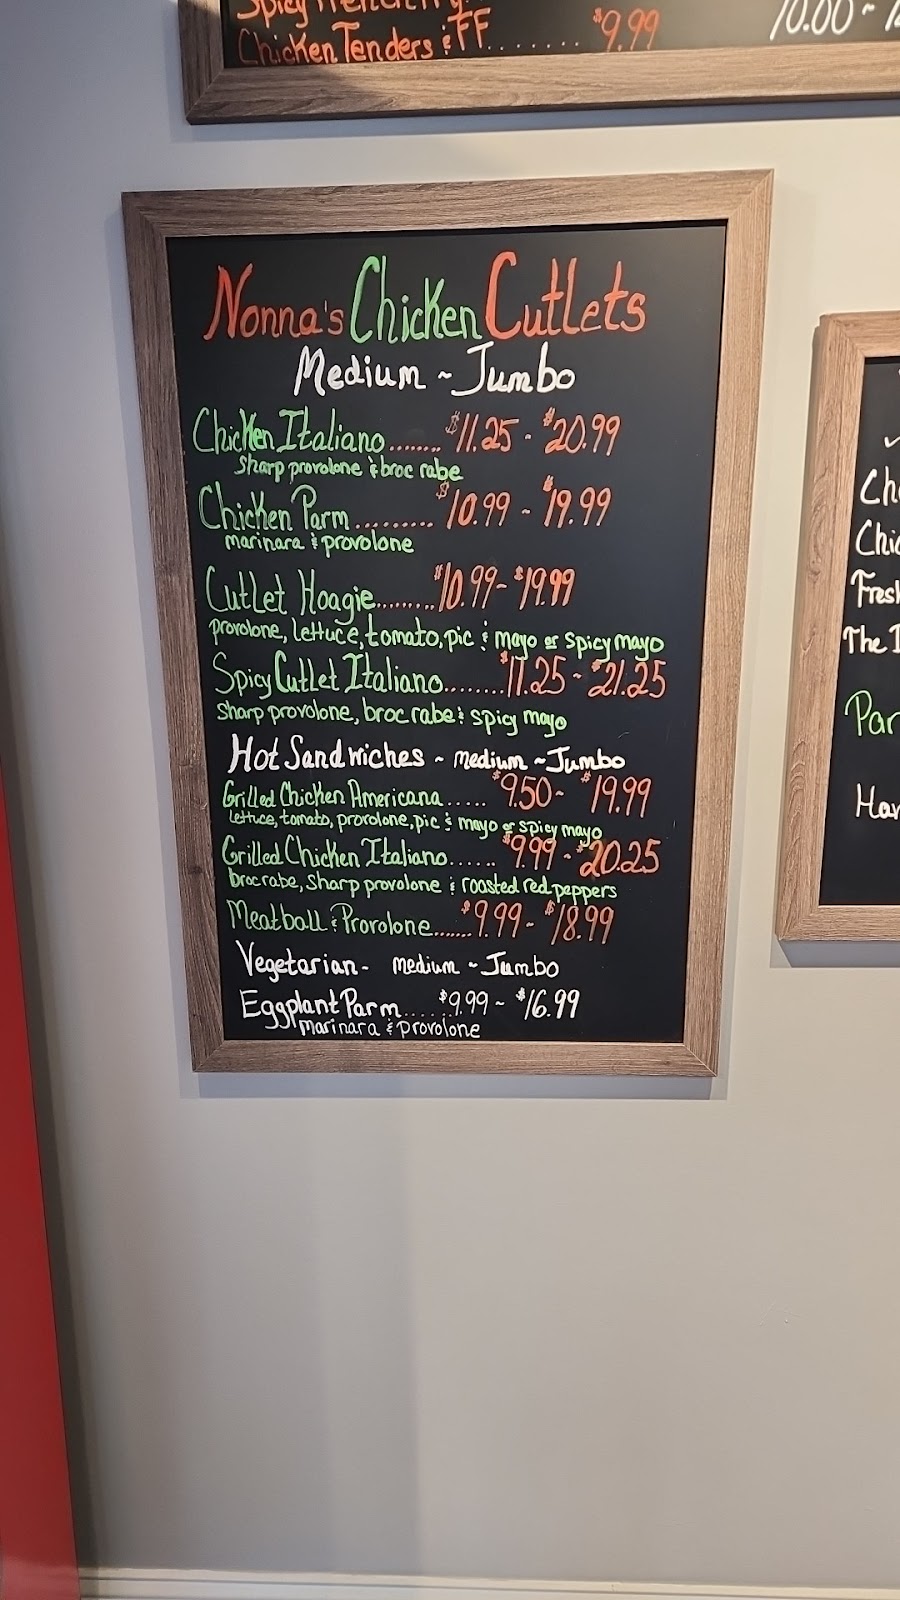 Chicken Tenders & FF........ $9.99
10.00~
Nonna's Chicken Cutlets
Medium ~ Jumbo
Chicken Italiano........ $11.25 - $20.99
Sharp provolone & broc rabe
Chicken Parm......... $10.99 - $19.99
marinara & provolone
Cutlet Hoagie......... $10.99- $19.99
provolone, lettuce, tomato, pic & mayo or spicy mayo
Spicy Cutlet Italiano........ $11.25 - $21.25
sharp provolone, broc rabe & spicy mayo
Hot Sandwiches ~ medium ~ Jumbo
Grilled Chicken Americana..... $9.50- $19.99
lettuce, tomato, provolone, pic & mayo or spicy mayo
Grilled Chicken Italiano...... $9.99 - $20.25
broc rabe, Sharp provolone & roasted red peppers
Meatball & Provolone....... $9.99 - $18.99
Vegetarian- medium ~ Jumbo
Eggplant Parm...... $9.99 ~ $16.99
marinara & provolone
Fresh
The